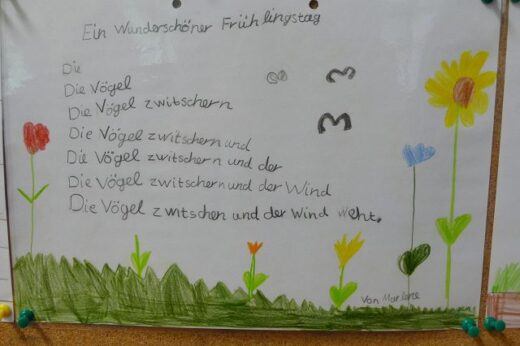 Ein Wunderschöner Frühlingstag
Die
Die Vögel
Die Vögel zwitschern
Die Vögel zwitschern und
Die Vögel zwitschern und der
Die Vögel zwitschern und der Wind
Die Vögel zwitschen und der Wind weht.
Von Marlene